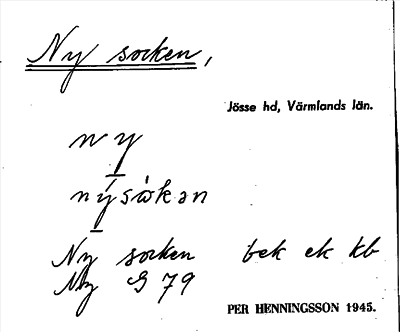 Ny socken,
Jösse hd, Värmlands län.
ny
nýsòkən
Ny socken bek ek kb
Ny G 79
PER HENNINGSSON 1945.